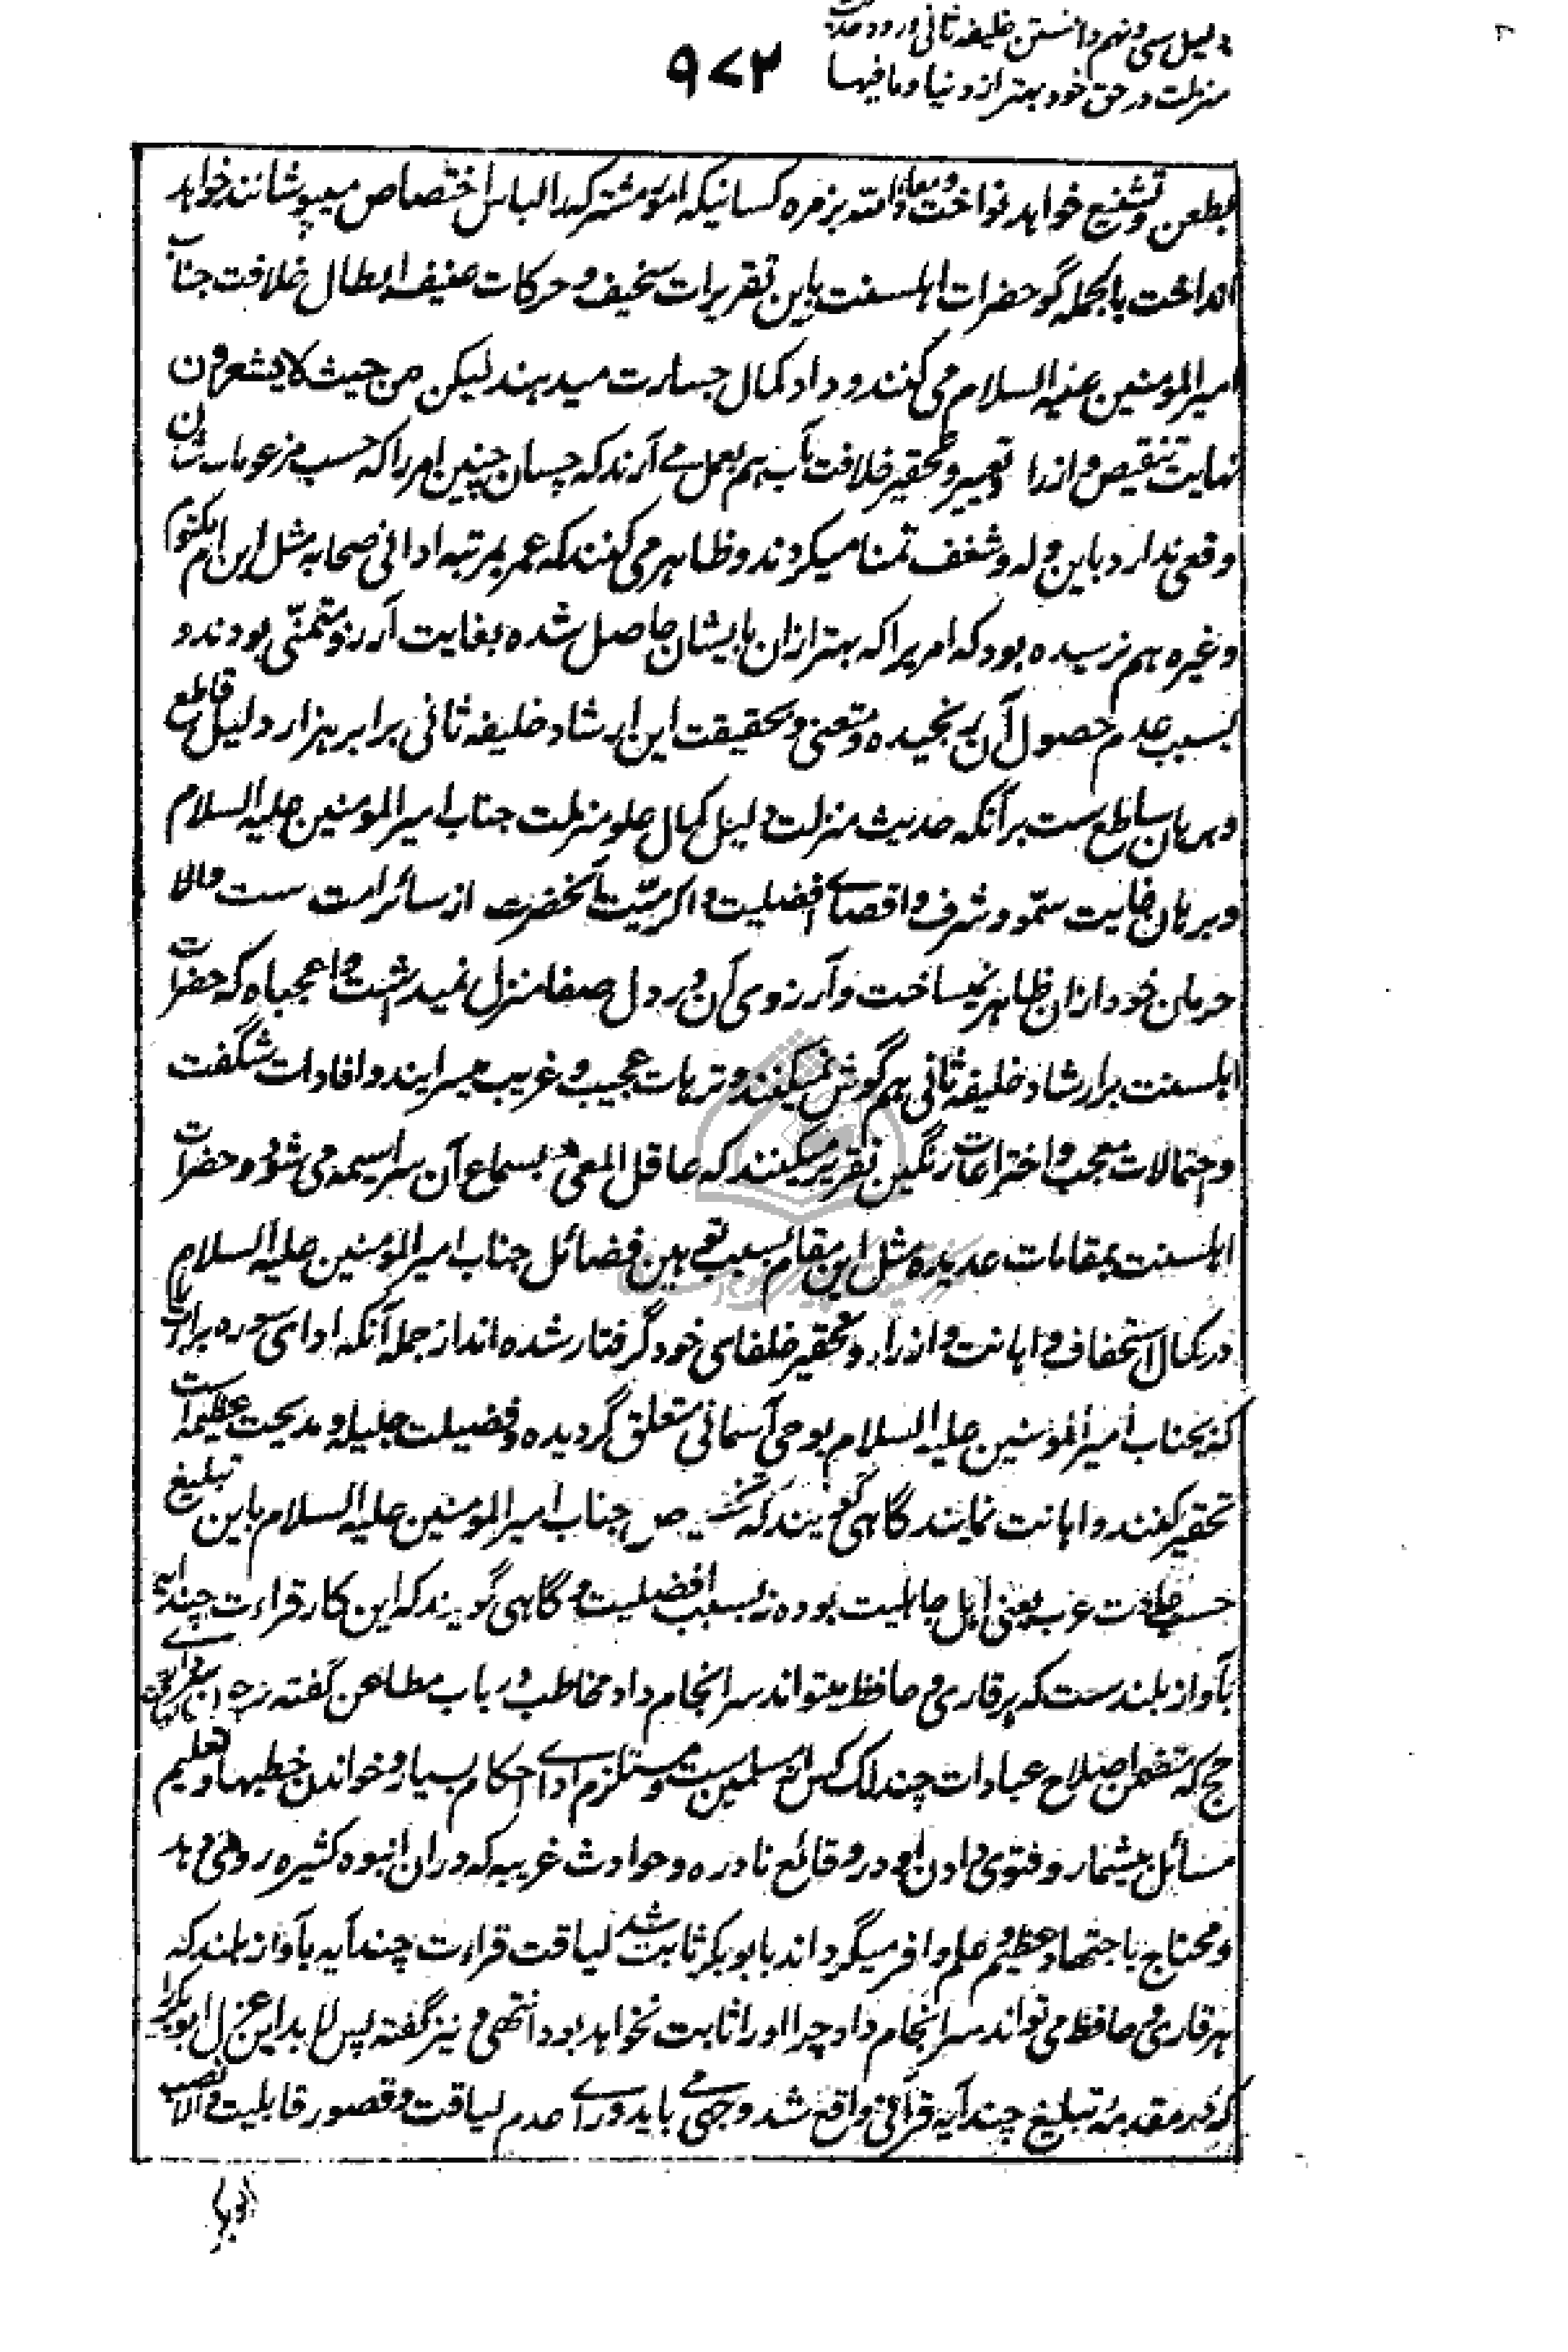 دلیل سی و نهم دانستن خلیفه ثانی ورود حدیث
منزلت در حق خود بهتر از دنیا و ما فیها
۹۷۲
بطعن و تشنیع خواهد نواخت و معاذ الله بزمره کسانیکه امور مشترکه را لباس اختصاص میپوشانند خواهد
انداخت بالجمله گو حضرات اهلسنت باین تقریرات سخیف و حرکات عنیف ابطال خلافت جناب
امیر المومنین علیه السلام می کنند و داد کمال جسارت میدهند لیکن من حیث لا یشعرون
نهایت تنقیص و ازرا و تعییر و تحقیر خلافت مآب هم بعمل می آرند که چسان چنین امر را که حسب مزعومات شان
وقعی ندارد باین وله و شغف تمنا میکردند و ظاهر می کنند که عمر بمرتبه ادانی صحابه مثل ابن ام مکتوم
و غیره هم نرسیده بود که امریرا که بهتر ازان بایشان حاصل شده بغایت آرزو متمنّی بودند و
بسبب عدم حصول آن رنجیده و متعنی و بحقیقت این ارشاد خلیفه ثانی برابر هزار دلیل قاطع
و برهان ساطع ست بر آنکه حدیث منزلت دلیل کمال علو منزلت جناب امیر المومنین علیه السلام
و برهان غایت سموّ و شرف و اقصای افضلیت و اکرمیّت آنحضرت از سائر امت ست والا
حرمان خود ازان ظاهر نمیساخت و آرزوی آن در دل صفا منزل نمیداشت وا عجباه که حضرات
اهلسنت بر ارشاد خلیفه ثانی هم گوش نمیکنند و ترهات عجیب و غریب میسرایند و افادات شگفت
و احتمالات معجب و اختراعات رنگین تقریر میکنند که عاقل المعی بسماع آن سراسیمه می شود و حضرات
اهلسنت بمقامات عدیده مثل این مقام بسبب توهین فضائل جناب امیر المومنین علیه السلام
در کمال استخفاف و اهانت و ازراء و تحقیر خلفای خود گرفتار شده اند از جمله آنکه ادای سوره برات را
که بجناب امیر المومنین علیه السلام بوحی آسمانی متعلق گردیده و فضیلت جلیله و مدیحت عظیمه است
تحقیر کنند و اهانت نمایند گاهی گویند که تخصیص جناب امیر المومنین علیه السلام باین تبلیغ
حسب عادت عرب یعنی اهل جاهلیت بوده نه بسبب افضلیت و گاهی گویند که این کار قراءت چند آیه
بآواز بلند ست که هر قاری و حافظ میتواند سرانجام داد مخاطب در باب مطاعن گفته
حج که متضمن اصلاح عبادات چند لک کس از مسلمین ست و مستلزم ادای احکام بسیار و خواندن خطبها و تعلیم
مسائل بیشمار و فتوی دادن او در وقائع نادره و حوادث غریبه که دران انبوه کثیره رو می دهد
و محتاج باجتهاد عظیم و علم وافر میگرداند بابو بکر ثابت شد لیاقت قراءت چند آیه بآواز بلند که
هر قاری و حافظ می تواند سرانجام داد چرا او را ثابت نخواهد بود انتهی و نیز گفته پس لا بد این عزل ابو بکر را
که در مقدمهٔ تبلیغ چند آیه قرآنی واقع شد وجهی باید ورای عدم لیاقت و قصور قابلیت و الا نصب